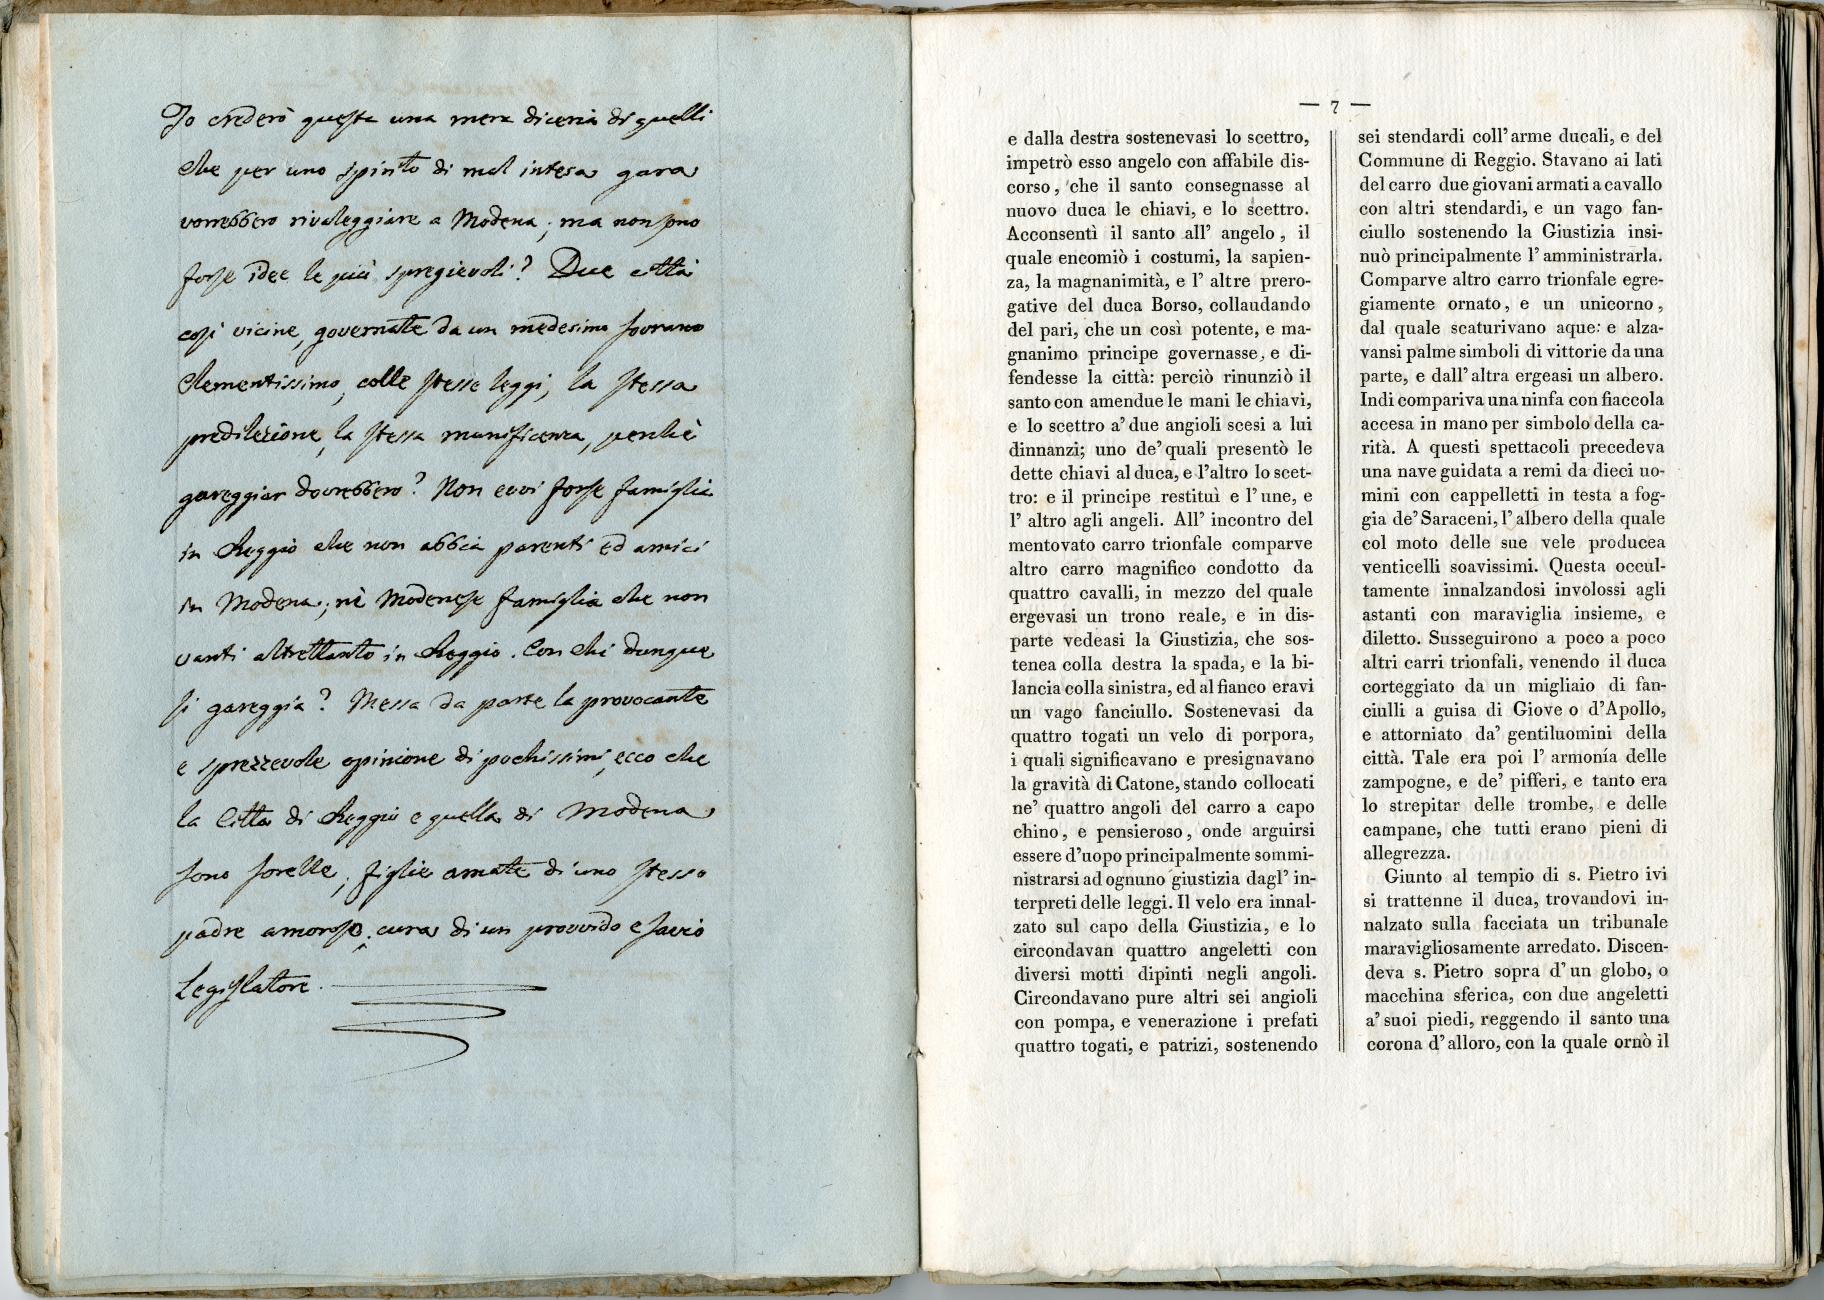 Io crederò questa una mera diceria di quelli
che per uno spirito di mal intesa gara
vorrebbero rivaleggiare a Modena; ma non sono
forse idee le più spregievoli? Due città
così vicine, governate da un medesimo sovrano
clementissimo, colle stesse leggi, la stessa
predilezione, la stessa munificenza, perchè
gareggiar dovrebbero? Non evvi forse famiglia
in Reggio che non abbia parenti ed amici
in Modena; nè Modenese famiglia che non
vanti altrettanto in Reggio. Con chi dunque
si gareggia? Messa da parte la provocante
e sprezzevole opinione di pochissimi, ecco che
la Città di Reggio e quella di Modena
sono sorelle; figlie amate di uno stesso
padre amoroso, cura di un provvido e savio
Legislatore.
— 7 —
e dalla destra sostenevasi lo scettro,
impetrò esso angelo con affabile dis-
corso, che il santo consegnasse al
nuovo duca le chiavi, e lo scettro.
Acconsentì il santo all' angelo, il
quale encomiò i costumi, la sapien-
za, la magnanimità, e l' altre prero-
gative del duca Borso, collaudando
del pari, che un così potente, e ma-
gnanimo principe governasse, e di-
fendesse la città: perciò rinunziò il
santo con amendue le mani le chiavi,
e lo scettro a' due angioli scesi a lui
dinnanzi; uno de' quali presentò le
dette chiavi al duca, e l'altro lo scet-
tro: e il principe restituì e l' une, e
l' altro agli angeli. All' incontro del
mentovato carro trionfale comparve
altro carro magnifico condotto da
quattro cavalli, in mezzo del quale
ergevasi un trono reale, e in dis-
parte vedeasi la Giustizia, che sos-
tenea colla destra la spada, e la bi-
lancia colla sinistra, ed al fianco eravi
un vago fanciullo. Sostenevasi da
quattro togati un velo di porpora,
i quali significavano e presignavano
la gravità di Catone, stando collocati
ne' quattro angoli del carro a capo
chino, e pensieroso, onde arguirsi
essere d'uopo principalmente sommi-
nistrarsi ad ognuno giustizia dagl' in-
terpreti delle leggi. Il velo era innal-
zato sul capo della Giustizia, e lo
circondavan quattro angeletti con
diversi motti dipinti negli angoli.
Circondavano pure altri sei angioli
con pompa, e venerazione i prefati
quattro togati, e patrizi, sostenendo
sei stendardi coll' arme ducali, e del
Commune di Reggio. Stavano ai lati
del carro due giovani armati a cavallo
con altri stendardi, e un vago fan-
ciullo sostenendo la Giustizia insi-
nuò principalmente l' amministrarla.
Comparve altro carro trionfale egre-
giamente ornato, e un unicorno,
dal quale scaturivano aque: e alza-
vansi palme simboli di vittorie da una
parte, e dall' altra ergeasi un albero.
Indi compariva una ninfa con fiaccola
accesa in mano per simbolo della ca-
rità. A questi spettacoli precedeva
una nave guidata a remi da dieci uo-
mini con cappelletti in testa a fog-
gia de' Saraceni, l' albero della quale
col moto delle sue vele producea
venticelli soavissimi. Questa occul-
tamente innalzandosi involossi agli
astanti con maraviglia insieme, e
diletto. Susseguirono a poco a poco
altri carri trionfali, venendo il duca
corteggiato da un migliaio di fan-
ciulli a guisa di Giove o d'Apollo,
e attorniato da' gentiluomini della
città. Tale era poi l' armonía delle
zampogne, e de' pifferi, e tanto era
lo strepitar delle trombe, e delle
campane, che tutti erano pieni di
allegrezza.
Giunto al tempio di s. Pietro ivi
si trattenne il duca, trovandovi in-
nalzato sulla facciata un tribunale
maravigliosamente arredato. Discen-
deva s. Pietro sopra d' un globo, o
macchina sferica, con due angeletti
a' suoi piedi, reggendo il santo una
corona d' alloro, con la quale ornò il